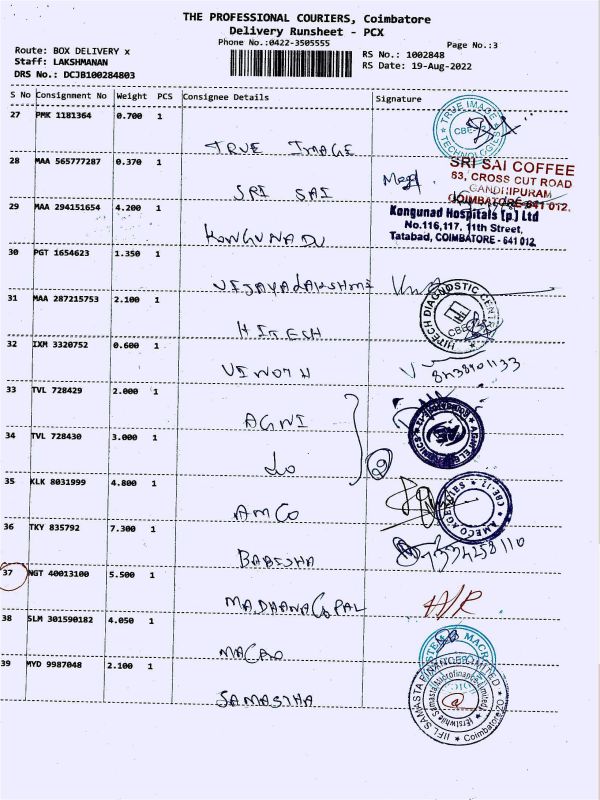 THE PROFESSIONAL COURIERS, Coimbatore
Delivery Runsheet - PCX
Phone No.:0422-3505555
Page No.:3
Route: BOX DELIVERY x
RS No.: 1002848
Staff: LAKSHMANAN
RS Date: 19-Aug-2022
DRS No.: DCJB100284803
S No Consignment No Weight PCS Consignee Details Signature
27 PMK 1181364 0.700 1
TRUE IMAGE
TRUE IMAGE TECHNOLOGIES CBE
28 MAA 565777287 0.370 1
SRI SAI
SRI SAI COFFEE
63, CROSS CUT ROAD
GANDHIPURAM
COIMBATORE-641 012.
29 MAA 294151654 4.200 1
KONGUNADU
Kongunad Hospitals (p.) Ltd
No.116,117, 11th Street,
Tatabad, COIMBATORE - 641 012.
30 PGT 1654623 1.350 1
VIJAYALAKSHMI
31 MAA 287215753 2.100 1
HITECH
HITECH DIAGNOSTIC CENTRE CBE
32 IXM 3320752 0.600 1
VINOTH
33 TVL 728429 2.000 1
AGNI
34 TVL 728430 3.000 1
Do
35 KLK 8031999 4.800 1
AMCO
36 TKY 835792 7.300 1
BABISHA
37 NGT 40013100 5.500 1
MADHANAGOPAL
38 SLM 301590182 4.050 1
MACRO
39 MYD 9987048 2.100 1
SAMASTHA
IIFL SAMASTA FINANCE LIMITED
Coimbatore